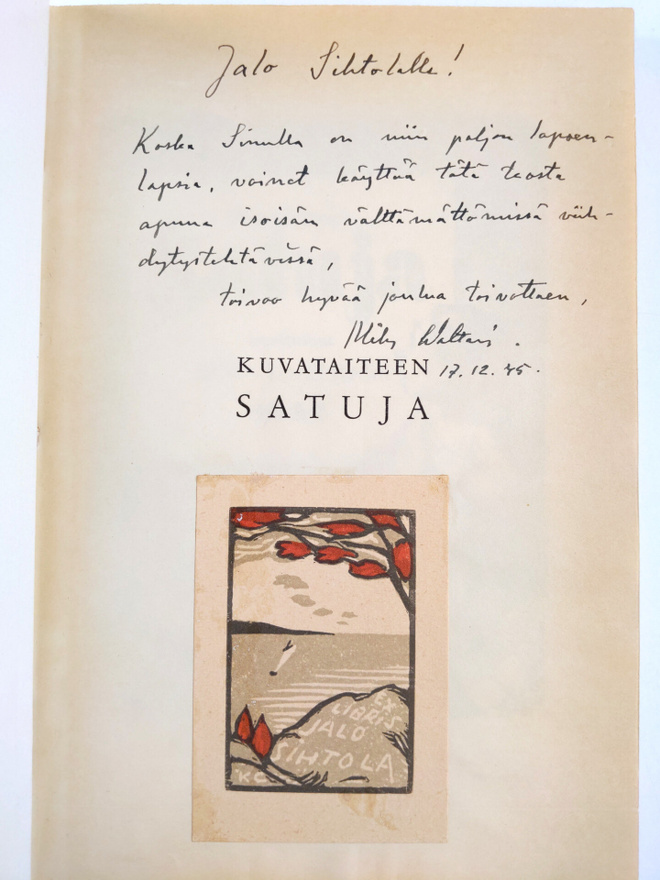 Jalo Sihtolalle!
Koska Sinulla on niin paljon lapsen-
lapsia, voinet käyttää tätä teosta
apuna isoisän välttämättömissä viih-
dytystehtävissä,
toivoo hyvää joulua toivottaen,
Mika Waltari.
KUVATAITEEN 17.12.45.
SATUJA
EX
LIBRIS
JALO
SIHTOLA
KC